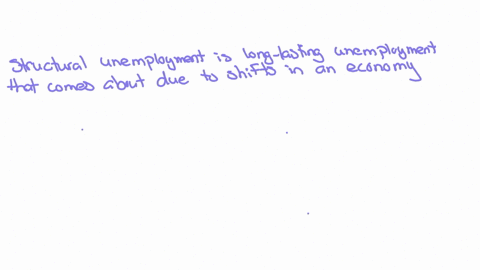 Structural unemployment is long-lasting unemployment
that comes about due to shifts in an economy